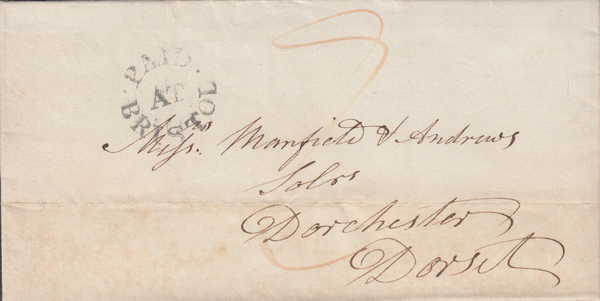 PAID
AT
BRISTOL
Messrs. Manfield & Andrews
Solrs
Dorchester
Dorset